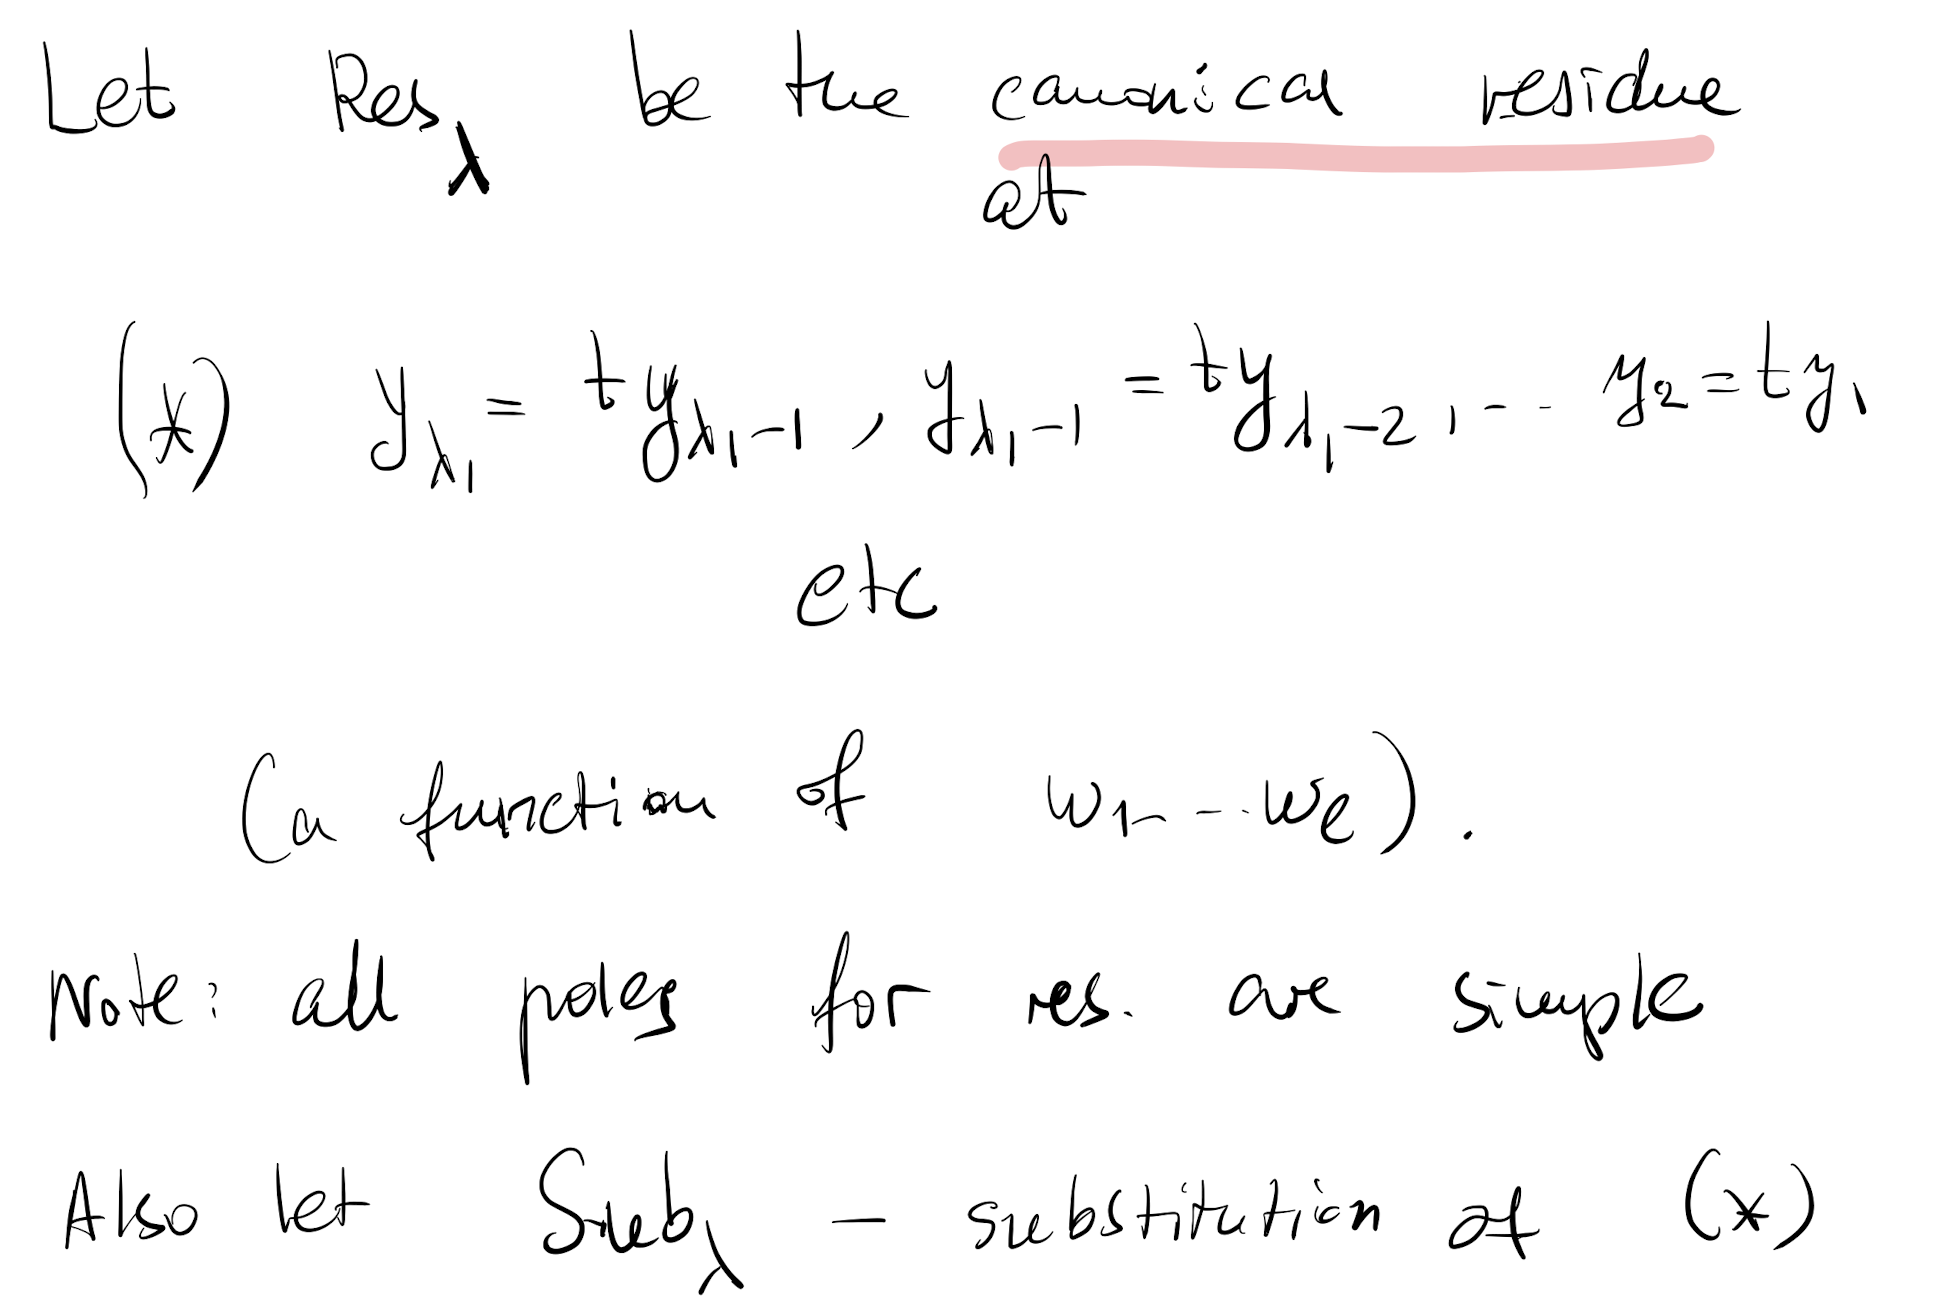 Let Res_λ be the canonical residue
at
(*) y_{λ_1} = t y_{λ_1-1}, y_{λ_1-1} = t y_{λ_1-2}, ... y_2 = t y_1
etc
(a function of w_1 ... w_ℓ).
Note: all poles for res. are simple
Also let Sub_λ – substitution at (*)